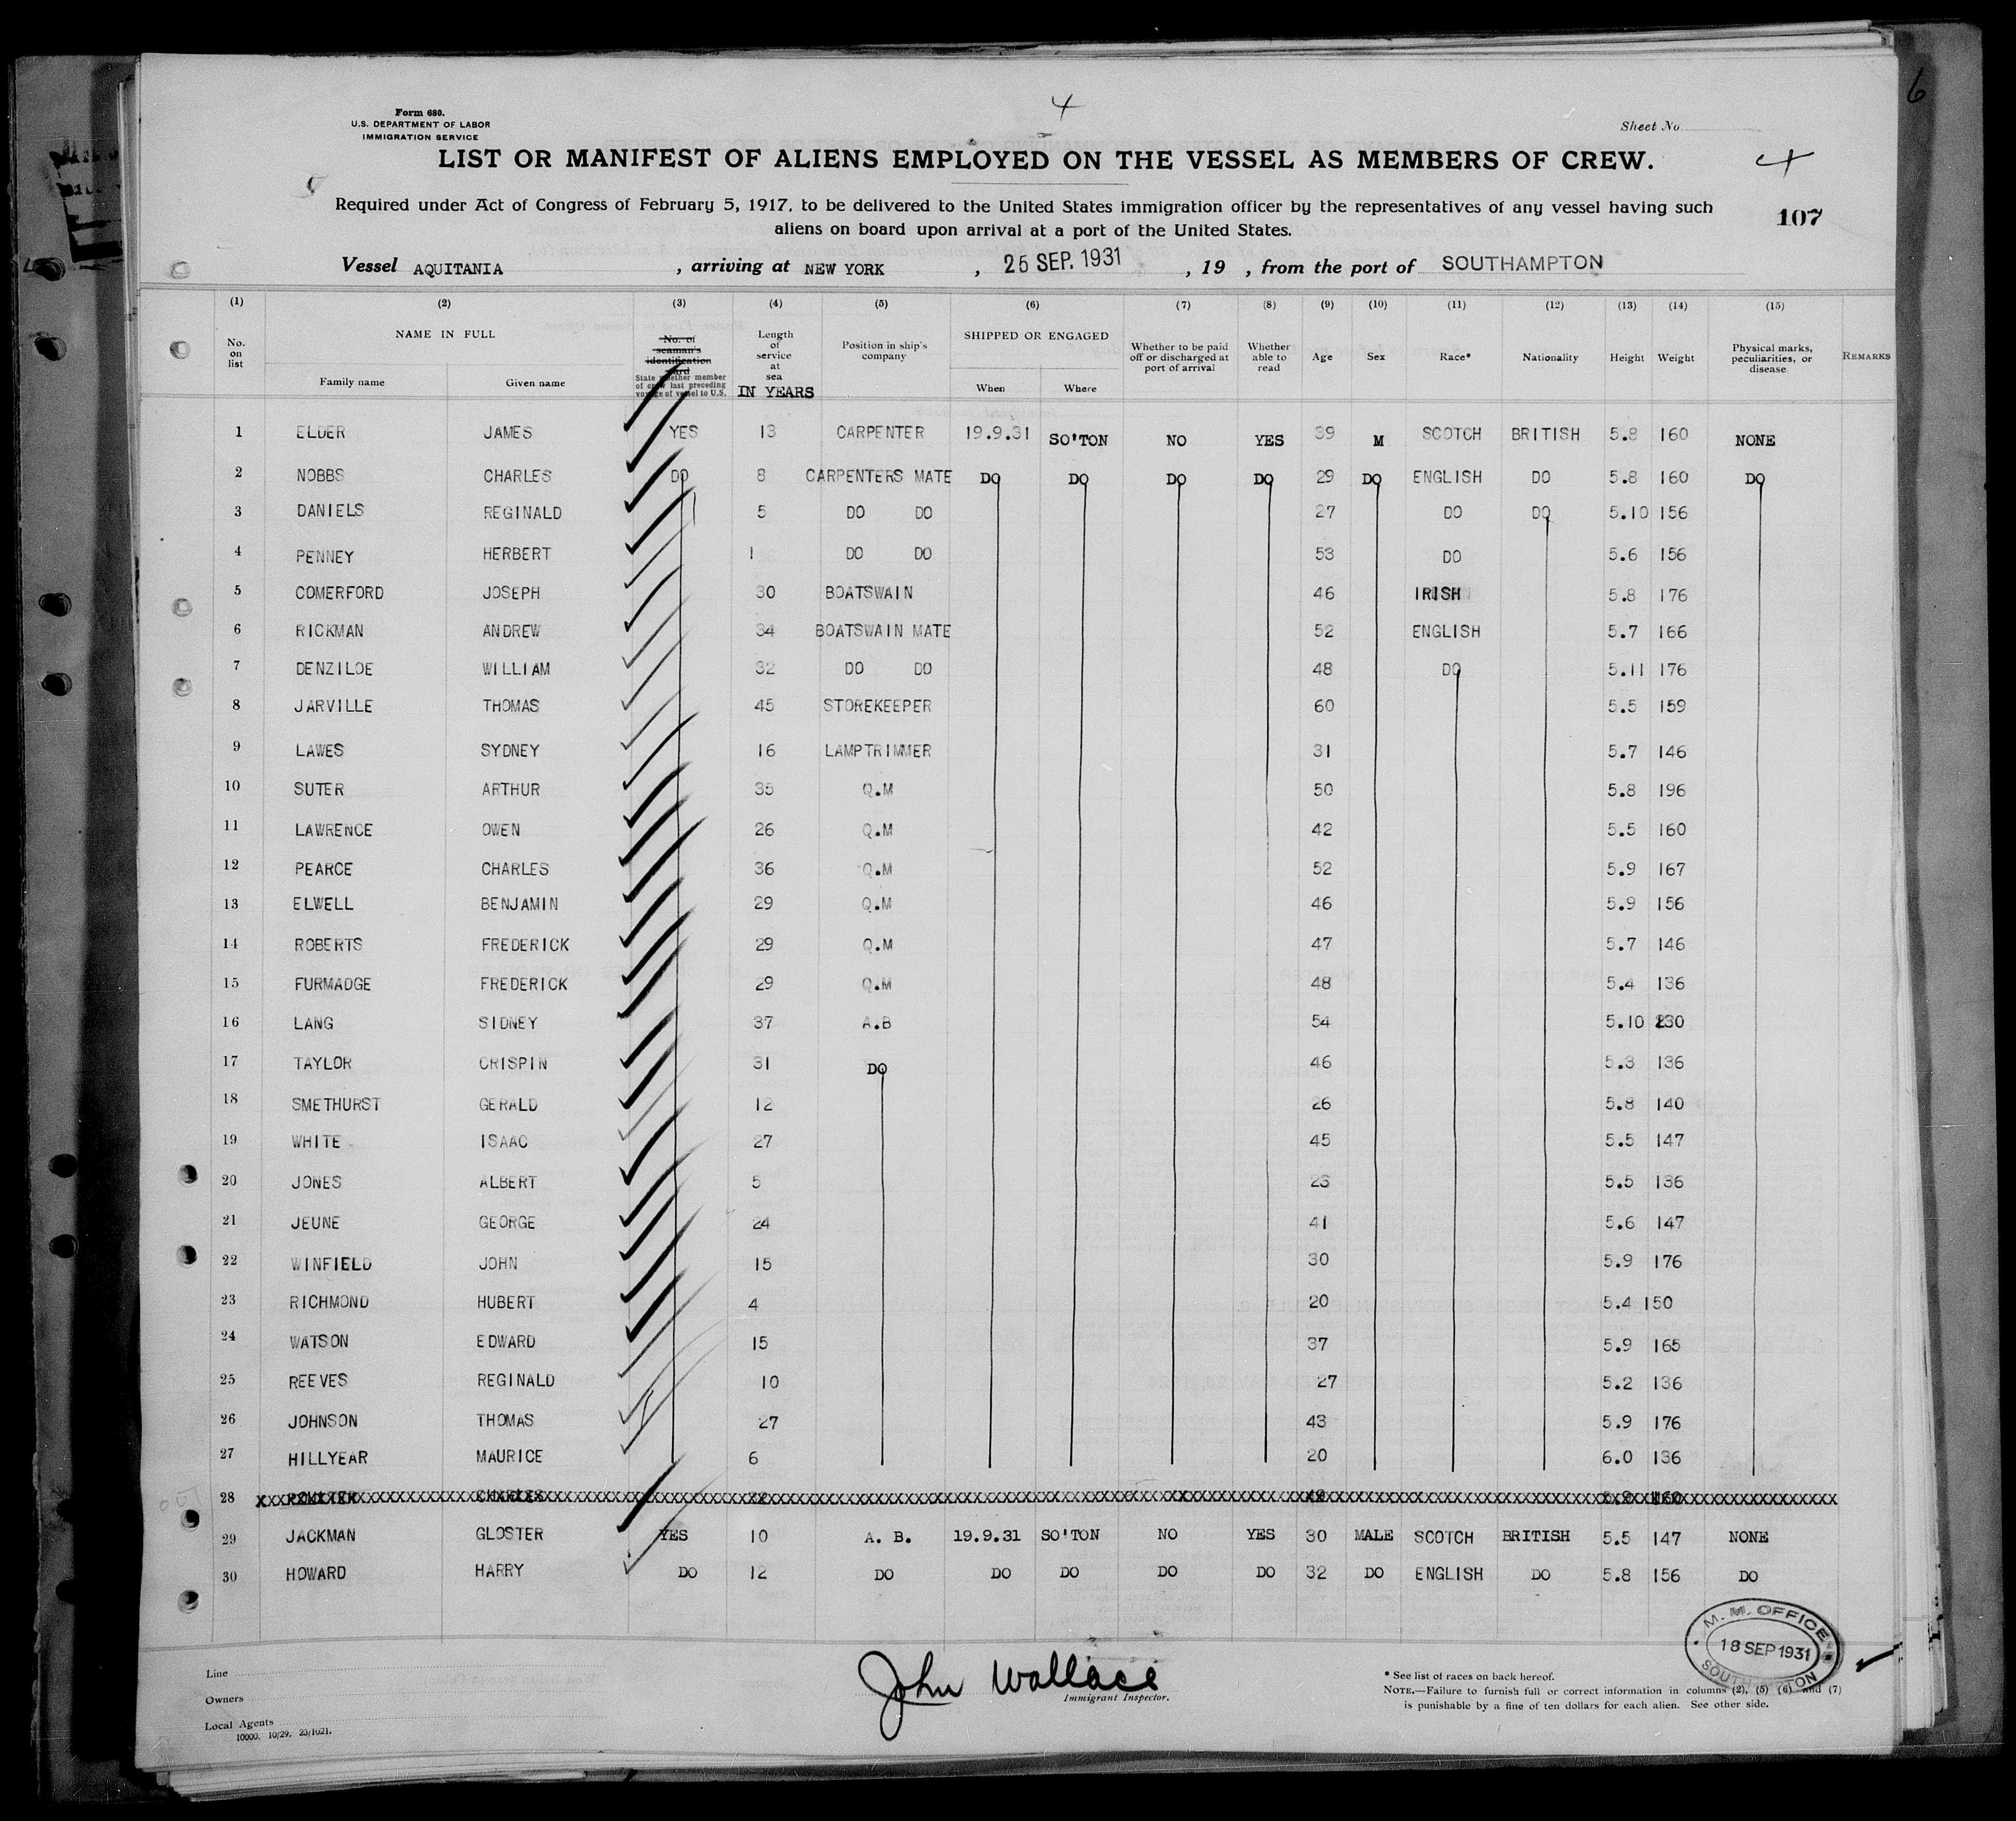 6
Form 680.
U.S. DEPARTMENT OF LABOR
IMMIGRATION SERVICE
4
Sheet No.
LIST OR MANIFEST OF ALIENS EMPLOYED ON THE VESSEL AS MEMBERS OF CREW.
4
Required under Act of Congress of February 5, 1917, to be delivered to the United States immigration officer by the representatives of any vessel having such
aliens on board upon arrival at a port of the United States.
107
Vessel AQUITANIA , arriving at NEW YORK , 25 SEP. 1931 , 19 , from the port of SOUTHAMPTON
(1) (2) (3) (4) (5) (6) (7) (8) (9) (10) (11) (12) (13) (14) (15)
No. on list NAME IN FULL Family name Given name No. of seaman's identification card State whether member of crew last preceding voyage of vessel to U.S. Length of service at sea IN YEARS Position in ship's company SHIPPED OR ENGAGED When Where Whether to be paid off or discharged at port of arrival Whether able to read Age Sex Race* Nationality Height Weight Physical marks, peculiarities, or disease REMARKS
1 ELDER JAMES YES 13 CARPENTER 19.9.31 SO'TON NO YES 39 M SCOTCH BRITISH 5.8 160 NONE
2 NOBBS CHARLES DO 8 CARPENTERS MATE DO DO DO DO 29 DO ENGLISH DO 5.8 160 DO
3 DANIELS REGINALD 5 DO DO 27 DO DO 5.10 156
4 PENNEY HERBERT 1 DO DO 53 DO 5.6 156
5 COMERFORD JOSEPH 30 BOATSWAIN 46 IRISH 5.8 176
6 RICKMAN ANDREW 34 BOATSWAIN MATE 52 ENGLISH 5.7 166
7 DENZILOE WILLIAM 32 DO DO 48 DO 5.11 176
8 JARVILLE THOMAS 45 STOREKEEPER 60 5.5 159
9 LAWES SYDNEY 16 LAMPTRIMMER 31 5.7 146
10 SUTER ARTHUR 35 Q.M 50 5.8 196
11 LAWRENCE OWEN 26 Q.M 42 5.5 160
12 PEARCE CHARLES 36 Q.M 52 5.9 167
13 ELWELL BENJAMIN 29 Q.M 46 5.9 156
14 ROBERTS FREDERICK 29 Q.M 47 5.7 146
15 FURMADGE FREDERICK 29 Q.M 48 5.4 136
16 LANG SIDNEY 37 A.B 54 5.10 230
17 TAYLOR CRISPIN 31 DO 46 5.3 136
18 SMETHURST GERALD 12 26 5.8 140
19 WHITE ISAAC 27 45 5.5 147
20 JONES ALBERT 5 23 5.5 136
21 JEUNE GEORGE 24 41 5.6 147
22 WINFIELD JOHN 15 30 5.9 176
23 RICHMOND HUBERT 4 20 5.4 150
24 WATSON EDWARD 15 37 5.9 165
25 REEVES REGINALD 10 27 5.2 136
26 JOHNSON THOMAS 27 43 5.9 176
27 HILLYEAR MAURICE 6 20 6.0 136
28 CHARLES
29 JACKMAN GLOSTER YES 10 A. B. 19.9.31 SO'TON NO YES 30 MALE SCOTCH BRITISH 5.5 147 NONE
30 HOWARD HARRY DO 12 DO DO DO DO DO 32 DO ENGLISH DO 5.8 156 DO
M. M. OFFICE
18 SEP 1931
SOUTHAMPTON
John Wallace
Immigrant Inspector.
Line
Owners
Local Agents
10000. 10/29. 23/1621.
* See list of races on back hereof.
NOTE.—Failure to furnish full or correct information in columns (2), (5) (6) and (7)
is punishable by a fine of ten dollars for each alien. See other side.